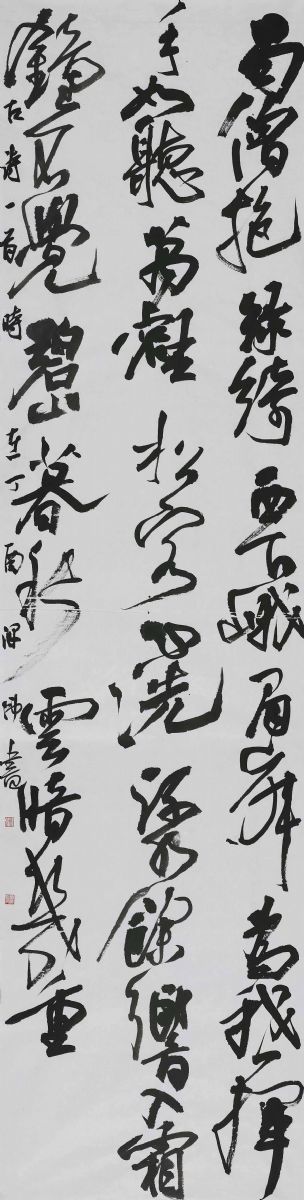 蜀僧抱綠綺西下峨眉峰為我一揮
手如聽萬壑松客心洗流水餘響入霜
鐘不覺碧山暮秋雲暗幾重
古詩一首時在丁酉 書